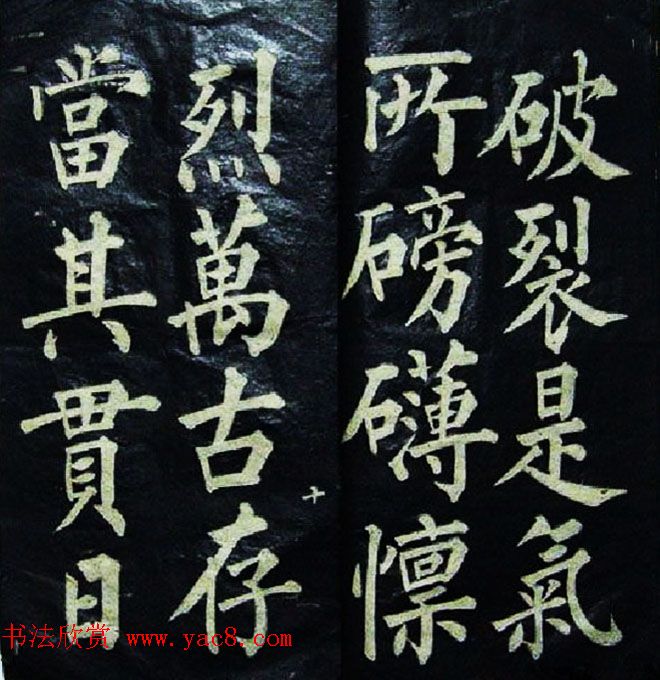 破裂是氣
所磅礴懔
烈萬古存
當其貫日
十
书法欣赏 www.yac8.com